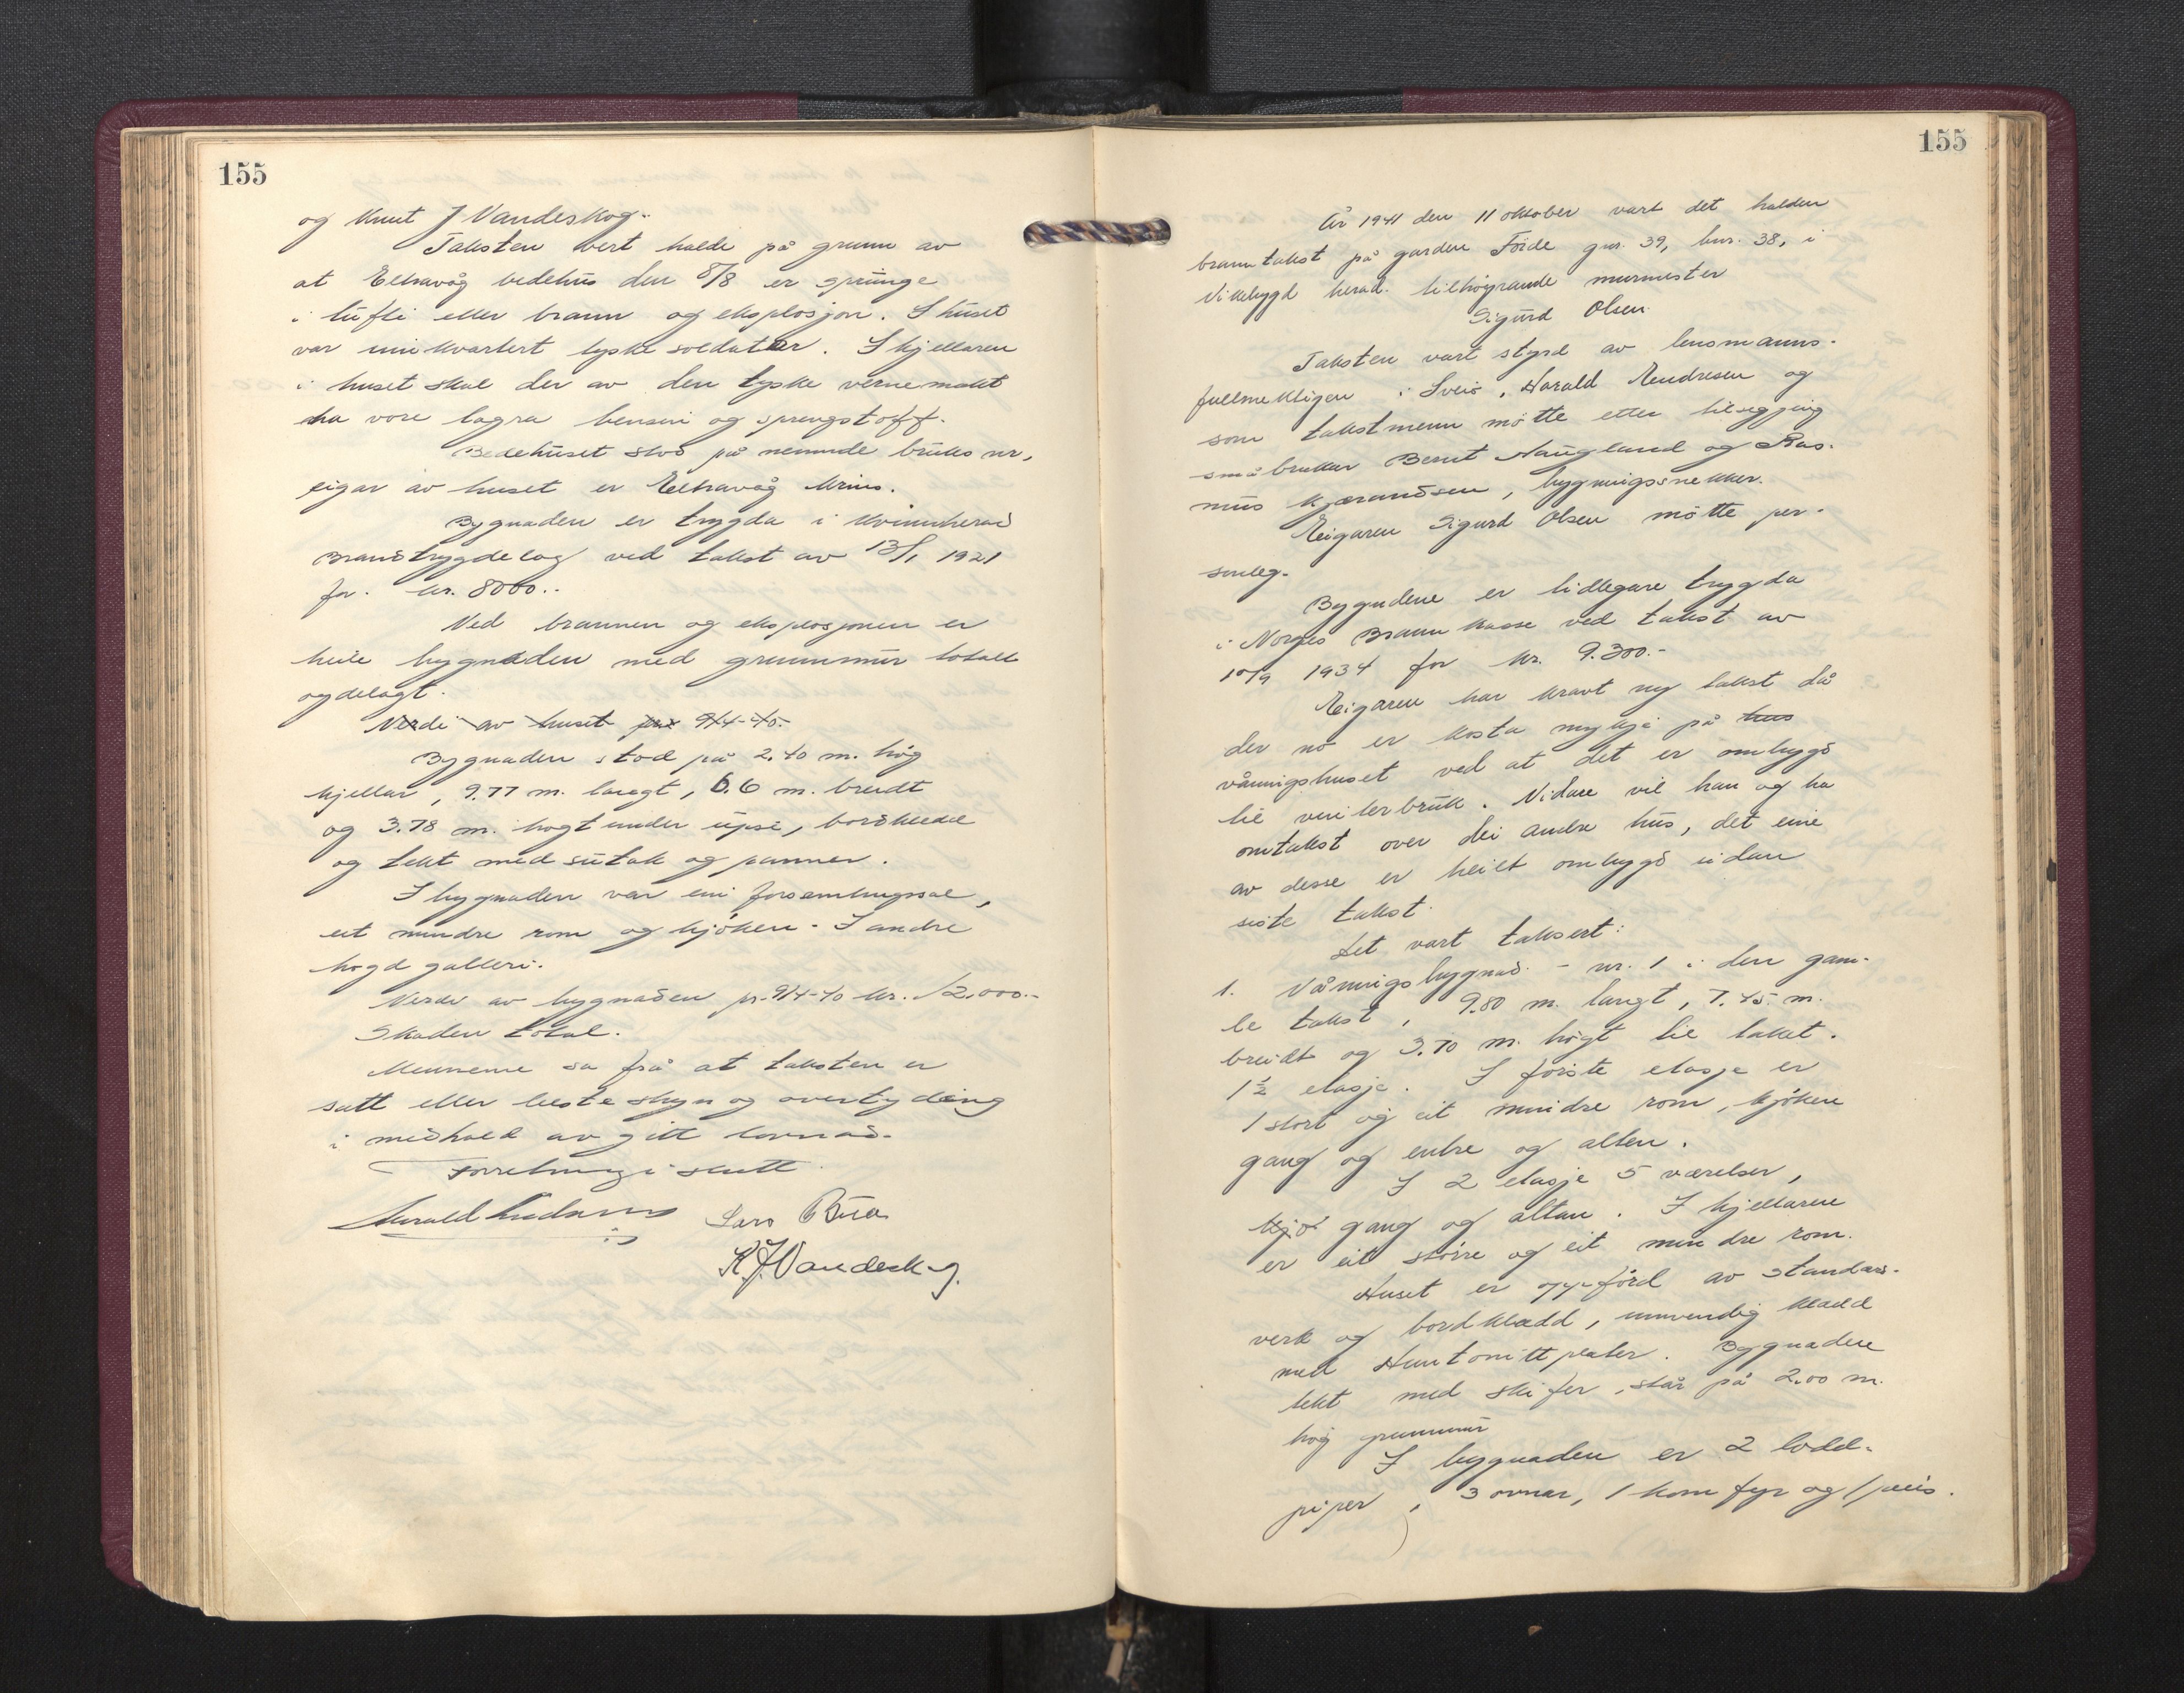 155
og Knut J Vandeskog.
Taksten vert halde på grunn av
at Eltravåg bedehus den 8/8 er sprunge
i lufti etter brann og eksplosjon. I huset
var innkvartert tyske soldatar. I kjellaren
i huset skal der av den tyske vernemakt
ha vore lagra bensin og sprengstoff.
Bedehuset stod på nemnde bruks nr,
eigar av huset er Eltravåg krins.
Bygnaden er trygda i Kvinnherad
Brandtrygdelag ved takst av 13/1 1921
for kr. 8000..
Ved brannen og eksplosjonen er
heile bygnaden med grunnmur totalt
øydelagt.
Verdi av huset pr. 9/4-40.
Bygnaden stod på 2,40 m. høg
kjellar, 9.77 m. langt, 6.6 m. breidt
og 3.78 m. høgt under upsi, bordkledd
og tekt med sutak og panner.
I bygnaden var ein forsamlingssal,
eit mindre rom og kjøken. I andre
høgd galleri.
Verdi av bygnaden pr. 9/4-40 kr. 12.000.-
Skaden total.
Mennene sa frå at taksten er
satt etter beste skyn og overtyding
i medhald av gitt lovnad.
Forretningi slutt.
Harald Endresen Lars Bua
K J Vandeskog.
155
År 1941 den 11 oktober vart det halden
branntakst på garden Føide gnr. 39, bnr. 38, i
Vikebygd herad. tilhøyrande murmester
Sigurd Olsen
Taksten vart styrd av lensmanns-
fullmektigen i Sveio, Harald Endresen og
som takstmenn møtte etter tilseggjing
småbrukar Bernt Naugland og Ras-
mus Kjærandsen, bygningssnekker.
Eigaren Sigurd Olsen møtte per-
sonleg.
Bygndene er tidlegare trygda
i Norges Brannkasse ved takst av
10/9 1934 for kr. 9.300.-
Eigaren har kravt ny takst då
der no er kosta mykje på hus
våningshuset ved at det er ombygd
til vinterbruk. Vidare vil han og ha
omtakst over dei andre hus, det eine
av desse er heilt ombygd sidan
siste takst.
Det vart taksert:
1. Våningsbygnad - nr. 1 i den gam-
le takst, 9.80 m. langt, 7.45 m.
breidt og 3.70 m. høgt til taket.
1½ etasje. I første etasje er
1 stort og eit mindre rom, kjøken
gang og entre og altan.
I 2 etasje 5 værelser,
kjø gang og altan. I kjellaren
er eit større og eit mindre rom.
Huset er oppførd av standar-
verk og bordkladd, innvendig kladd
med Huntonitt plater. Bygnaden
tekt med skifer, står på 2.00 m.
høg grunnmur
I bygnaden er 2 lodd-
piper, 3 ovnar, 1 komfyr og 1 peis.